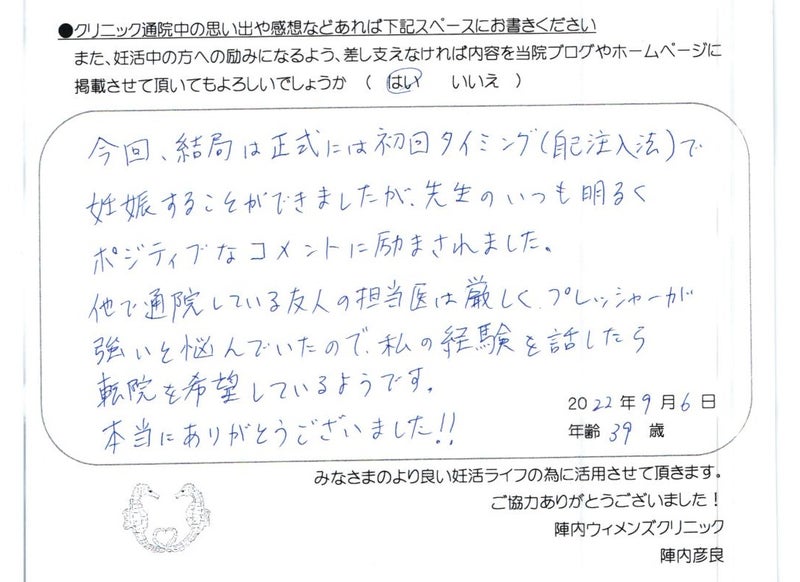 ●クリニック通院中の思い出や感想などあれば下記スペースにお書きください
また、妊活中の方への励みになるよう、差し支えなければ内容を当院ブログやホームページに
掲載させて頂いてもよろしいでしょうか （ はい いいえ ）
今回、結局は正式には初回タイミング(自己注入法)で
妊娠することができましたが、先生のいつも明るく
ポジティブなコメントに励まされました。
他で通院している友人の担当医は厳しく、プレッシャーが
強いと悩んでいたので、私の経験を話したら
転院を希望しているようです。
本当にありがとうございました!!
2022年9月6日
年齢 39 歳
みなさまのより良い妊活ライフの為に活用させて頂きます。
ご協力ありがとうございました！
陣内ウィメンズクリニック
陣内彦良